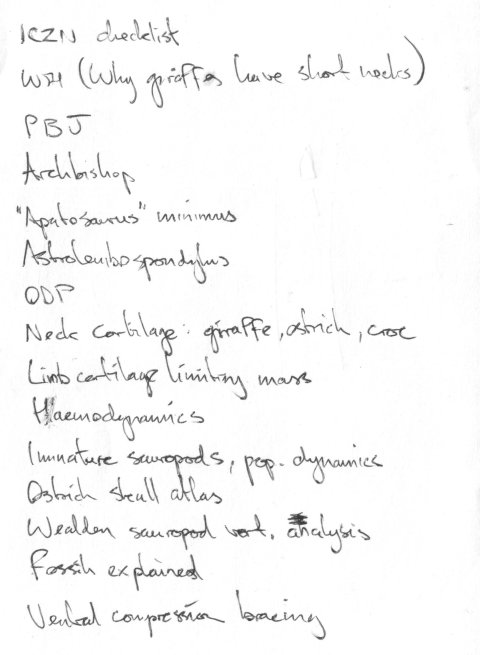 ICZN checklist
WH (Why giraffes have short necks)
PBJ
Archbishop
"Apatosaurus" minimus
Astrolembospondylus
ODP
Neck cartilage: giraffe, ostrich, croc
Limb cartilage limiting mass
Haemodynamics
Immature sauropods, pop. dynamics
Ostrich skull atlas
Wealden sauropod vert. analysis
Fossils explained
Ventral compression bracing